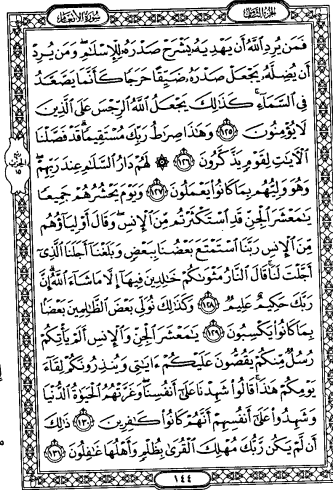 الجزء الثامن
سورة الأنعام
فَمَن يُرِدِ ٱللَّهُ أَن يَهۡدِيَهُۥ يَشۡرَحۡ صَدۡرَهُۥ لِلۡإِسۡلَٰمِۖ وَمَن يُرِدۡ
أَن يُضِلَّهُۥ يَجۡعَلۡ صَدۡرَهُۥ ضَيِّقًا حَرَجٗا كَأَنَّمَا يَصَّعَّدُ
فِي ٱلسَّمَآءِۚ كَذَٰلِكَ يَجۡعَلُ ٱللَّهُ ٱلرِّجۡسَ عَلَى ٱلَّذِينَ
لَا يُؤۡمِنُونَ ١٢٥ وَهَٰذَا صِرَٰطُ رَبِّكَ مُسۡتَقِيمٗاۗ قَدۡ فَصَّلۡنَا
ٱلۡأٓيَٰتِ لِقَوۡمٖ يَذَّكَّرُونَ ١٢٦ ۞ لَهُمۡ دَارُ ٱلسَّلَٰمِ عِندَ رَبِّهِمۡۖ
وَهُوَ وَلِيُّهُم بِمَا كَانُواْ يَعۡمَلُونَ ١٢٧ وَيَوۡمَ يَحۡشُرُهُمۡ جَمِيعٗا
يَٰمَعۡشَرَ ٱلۡجِنِّ قَدِ ٱسۡتَكۡثَرۡتُم مِّنَ ٱلۡإِنسِۖ وَقَالَ أَوۡلِيَآؤُهُم
مِّنَ ٱلۡإِنسِ رَبَّنَا ٱسۡتَمۡتَعَ بَعۡضُنَا بِبَعۡضٖ وَبَلَغۡنَآ أَجَلَنَا ٱلَّذِيٓ
أَجَّلۡتَ لَنَاۚ قَالَ ٱلنَّارُ مَثۡوَىٰكُمۡ خَٰلِدِينَ فِيهَآ إِلَّا مَا شَآءَ ٱللَّهُۗ إِنَّ
رَبَّكَ حَكِيمٌ عَلِيمٞ ١٢٨ وَكَذَٰلِكَ نُوَلِّي بَعۡضَ ٱلظَّٰلِمِينَ بَعۡضَۢا
بِمَا كَانُواْ يَكۡسِبُونَ ١٢٩ يَٰمَعۡشَرَ ٱلۡجِنِّ وَٱلۡإِنسِ أَلَمۡ يَأۡتِكُمۡ
رُسُلٞ مِّنكُمۡ يَقُصُّونَ عَلَيۡكُمۡ ءَايَٰتِي وَيُنذِرُونَكُمۡ لِقَآءَ
يَوۡمِكُمۡ هَٰذَاۚ قَالُواْ شَهِدۡنَا عَلَىٰٓ أَنفُسِنَاۖ وَغَرَّتۡهُمُ ٱلۡحَيَوٰةُ ٱلدُّنۡيَا
وَشَهِدُواْ عَلَىٰٓ أَنفُسِهِمۡ أَنَّهُمۡ كَانُواْ كَٰفِرِينَ ١٣٠ ذَٰلِكَ
أَن لَّمۡ يَكُن رَّبُّكَ مُهۡلِكَ ٱلۡقُرَىٰ بِظُلۡمٖ وَأَهۡلُهَا غَٰفِلُونَ ١٣١
١٤٤